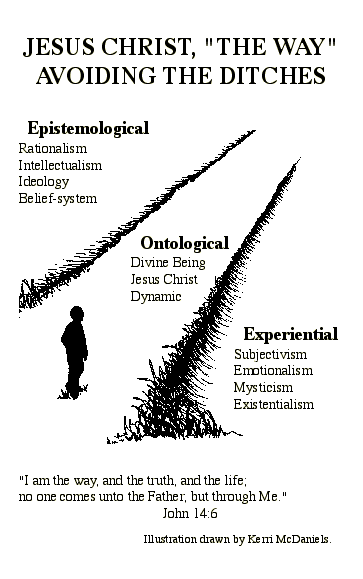 JESUS CHRIST, "THE WAY"
AVOIDING THE DITCHES
Epistemological
Rationalism
Intellectualism
Ideology
Belief-system
Ontological
Divine Being
Jesus Christ
Dynamic
Experiential
Subjectivism
Emotionalism
Mysticism
Existentialism
"I am the way, and the truth, and the life;
no one comes unto the Father, but through Me."
John 14:6
Illustration drawn by Kerri McDaniels.